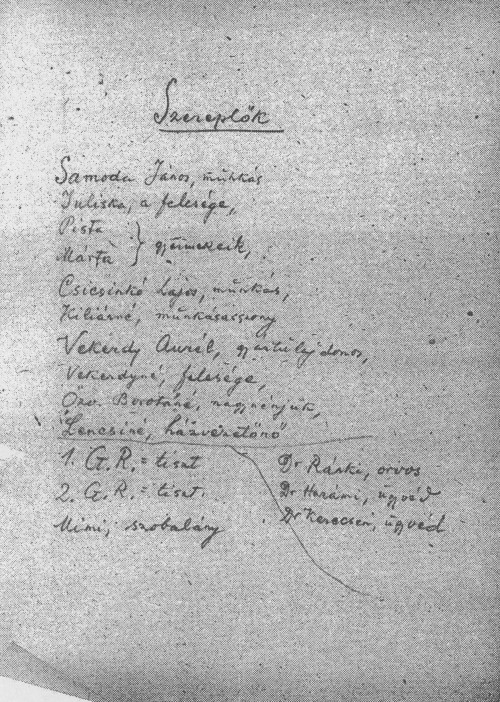 Szereplők
Samodai János, munkás
Juliska, a felesége,
Pista
Márta } gyermekeik,
Csicsinkó Lajos, munkás,
Kiliánné, munkásasszony
Vekerdy Aurél, gyártulajdonos,
Vekerdyné, felesége,
Özv. Borotáné, nagynénjük,
Lencsiné, házvezetőnő
1. G.R.= tiszt
2. G.R.= tiszt.
Mimi, szobalány
Dr Ránki, orvos
Dr Harámi, ügyvéd
Dr Kerecsen, ügyvéd